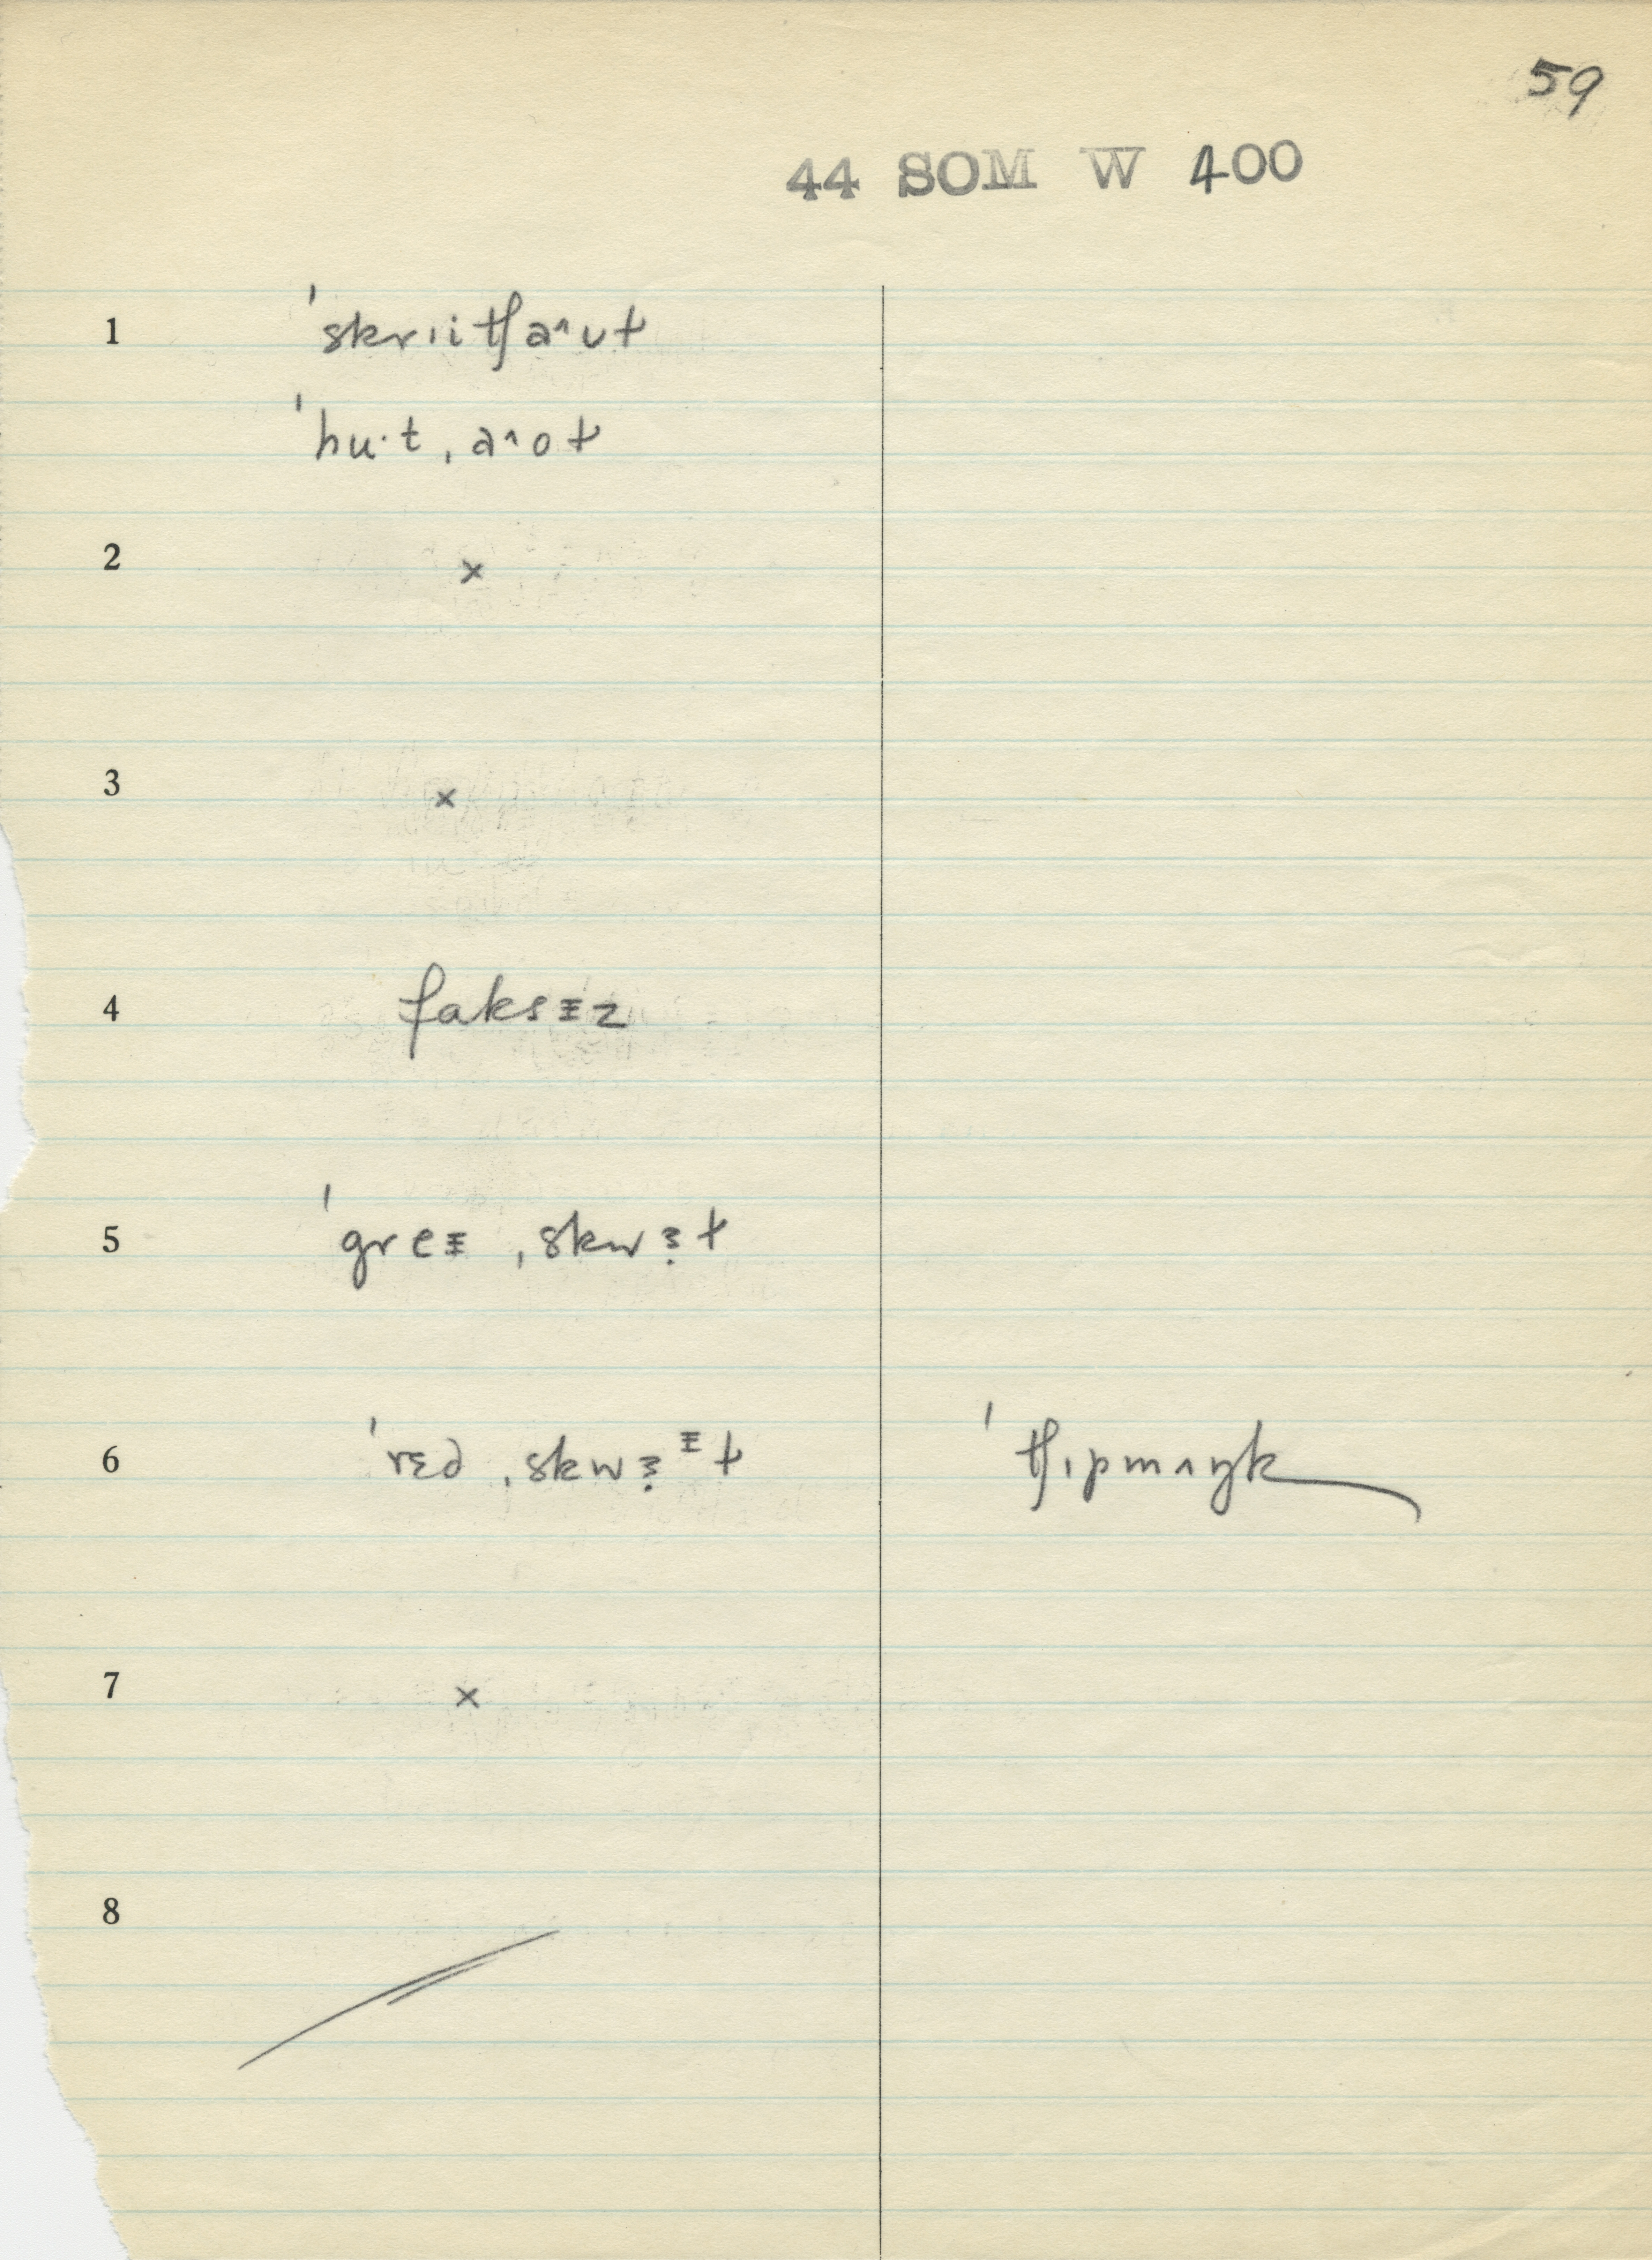 59
44 SOM W 400
1 ˈskrɪitʃaˆʊɫ
ˈhu·t ˌaˆoɫ
2 ×
3 ×
4 faksᵻz
5 ˈgreᵻ ˌskwɜ̣ɫ
6 ˈrɛd ˌskwɜ̣ᵻɫ ˈtʃɪpmʌŋk
7 ×
8